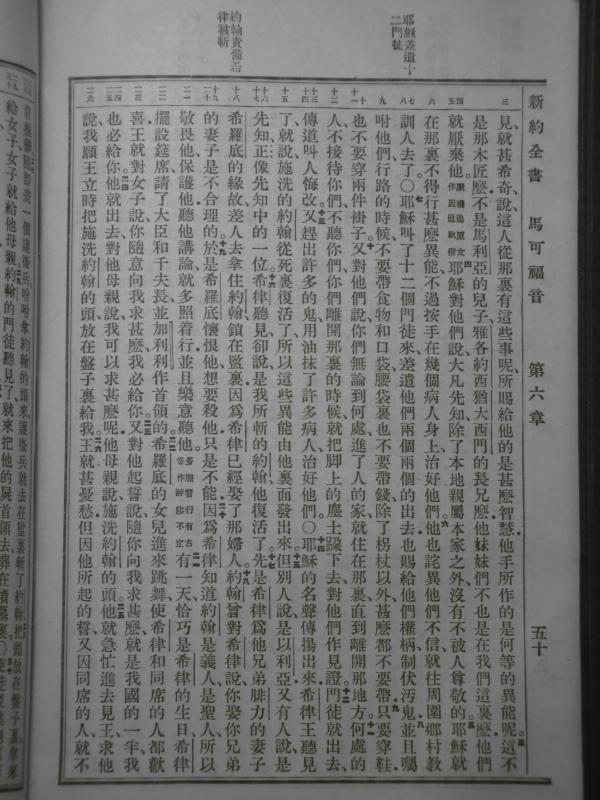 新約全書　馬可福音　第六章　五十
耶穌差遣十二門徒
約翰責備希律被斬
見就甚希奇說這人從那裏有這些事呢所賜給他的是甚麽智慧他手所作的是何等的異能呢這不
是那木匠麽不是馬利亞的兒子雅各約西猶大西門的長兄麽他妹妹們不也是在我們這裏麽他們
就厭棄他耶穌對他們說大凡先知除了本地親屬本家之外沒有不被人尊敬的耶穌就
在那裏不得行甚麽異能不過按手在幾個病人身上治好他們他也詫異他們不信就往周圍鄉村教
訓人去了〇耶穌叫了十二個門徒來差遣他們兩個兩個的出去也賜給他們權柄制伏汚鬼並且囑
咐他們行路的時候不要帶食物和口袋腰袋裏也不要帶錢除了柺杖以外甚麽都不要帶只要穿鞋
也不要穿兩件褂子又對他們說你們無論到何處進了人的家就住在那裏直到離開那地方何處的
人不接待你們不聽你們你們離開那裏的時候就把脚上的塵土跺下去對他們作見證門徒就出去
傳道叫人悔改又趕出許多的鬼用油抹了許多病人治好他們〇耶穌的名聲傳揚出來希律王聽見
了就說施洗的約翰從死裏復活了所以這些異能由他裏面發出來但別人說是以利亞又有人說是
先知正像先知中的一位希律聽見卻說是我所斬的約翰他復活了先是希律爲他兄弟腓力的妻子
希羅底的緣故差人去拿住約翰鎖在監裏因爲希律已經娶了那婦人約翰曾對希律說你娶你兄弟
的妻子是不合理的於是希羅底懷恨他想要殺他只是不能因爲希律知道約翰是義人是聖人所以
敬畏他保護他聽他講論就多照着行並且樂意聽他多照着行有古卷作游移不定有一天恰巧是希律的生日希律
擺設筵席請了大臣和千夫長並加利利作首領的希羅底的女兒進來跳舞使希律和同席的人都歡
喜王就對女子說你隨意向我求甚麽我必給你又對他起誓說隨你向我求甚麽就是我國的一半我
也必給你他就出去對他母親說我可以求甚麽呢他母親說施洗約翰的頭他就急忙進去見王求他
說我願王立時把施洗約翰的頭放在盤子裏給我王就甚憂愁但因他所起的誓又因同席的人就不
差一個護衛兵吩咐拿約翰的頭來護衛兵就去在監裏斬了約翰把頭放在盤子裏拿來
給女子女子就給他母親約翰的門徒聽見了就來把他的屍首領去葬在墳墓裏〇